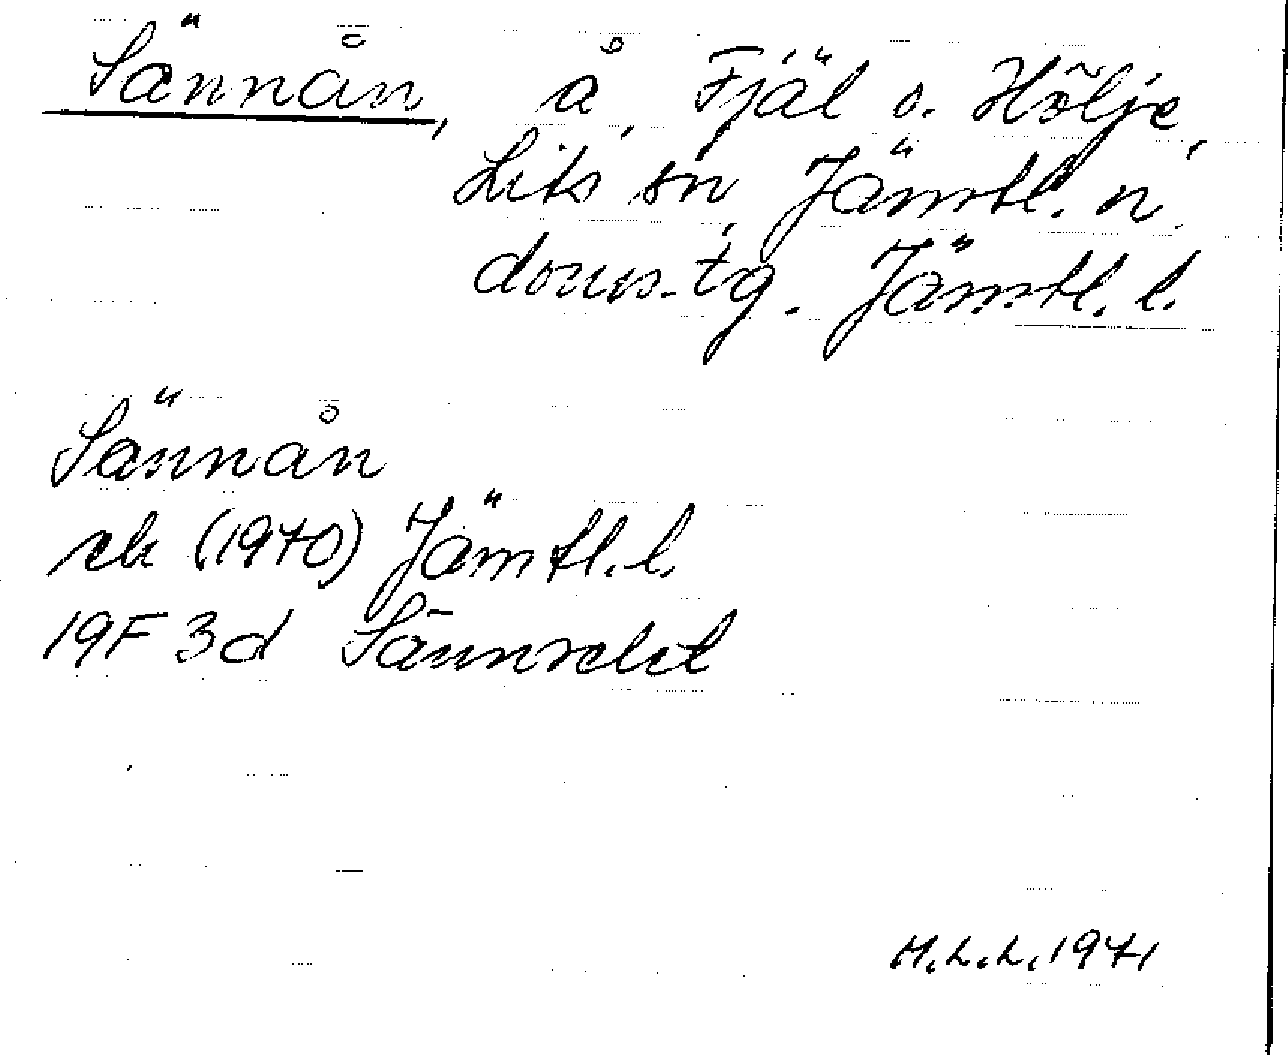 Sännån, å, Fjäl o. Hölje,
Lits sn, Jämtl. n.
doms.tg. Jämtl. l.
Sännån
ek (1970) Jämtl. l.
19F 3d Sännselet
H.L.L. 1971